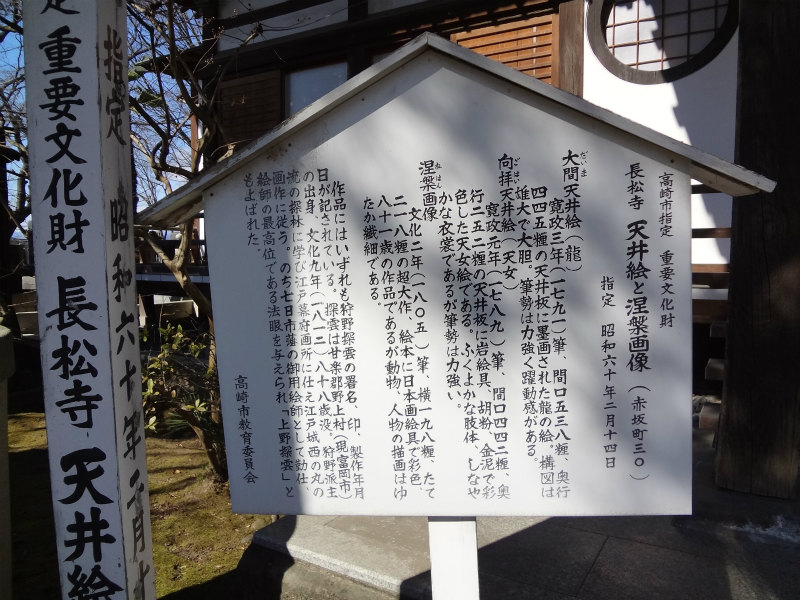 高崎市指定 重要文化財
長松寺 天井絵と涅槃画像 (赤坂町三〇)
指定 昭和六十年二月十四日
大間天井絵(龍)
だいま
寛政三年(一七九一)筆、間口五三八糎、奥行
四四五糎の天井板に墨画された龍の絵、構図は
雄大で大胆。筆勢は力強く躍動感がある。
向拝天井絵(天女)
ごはい
寛政元年(一七八九)筆、間口四四二糎、奥
行二五二糎の天井板に岩絵具、胡粉、金泥で彩
色した天女絵である。ふくよかな肢体、しなや
かな衣裳であるが筆勢は力強い。
涅槃画像
ねはん
文化二年(一八〇五)筆、横一九八糎、たて
二一八糎の超大作、絵本に日本画絵具で彩色、
八十一歳の作品であるが動物、人物の描画はゆ
たか繊細である。
作品にはいずれも狩野探雲の署名、印、製作年月
日が記されている。探雲は甘楽郡野上村(現富岡市)
の出身、文化九年(一八一二)八十八歳没。狩野派主
流の探林に学び江戸幕府画所に仕え江戸城西の丸の
画作に従う。のち七日市藩の御用絵師として勤仕、
絵師の最高位である法眼を与えられ「上野探雲」と
もよばれた。
高崎市教育委員会
定 重要文化財 長松寺 天井絵
指定 昭和六十年二月十